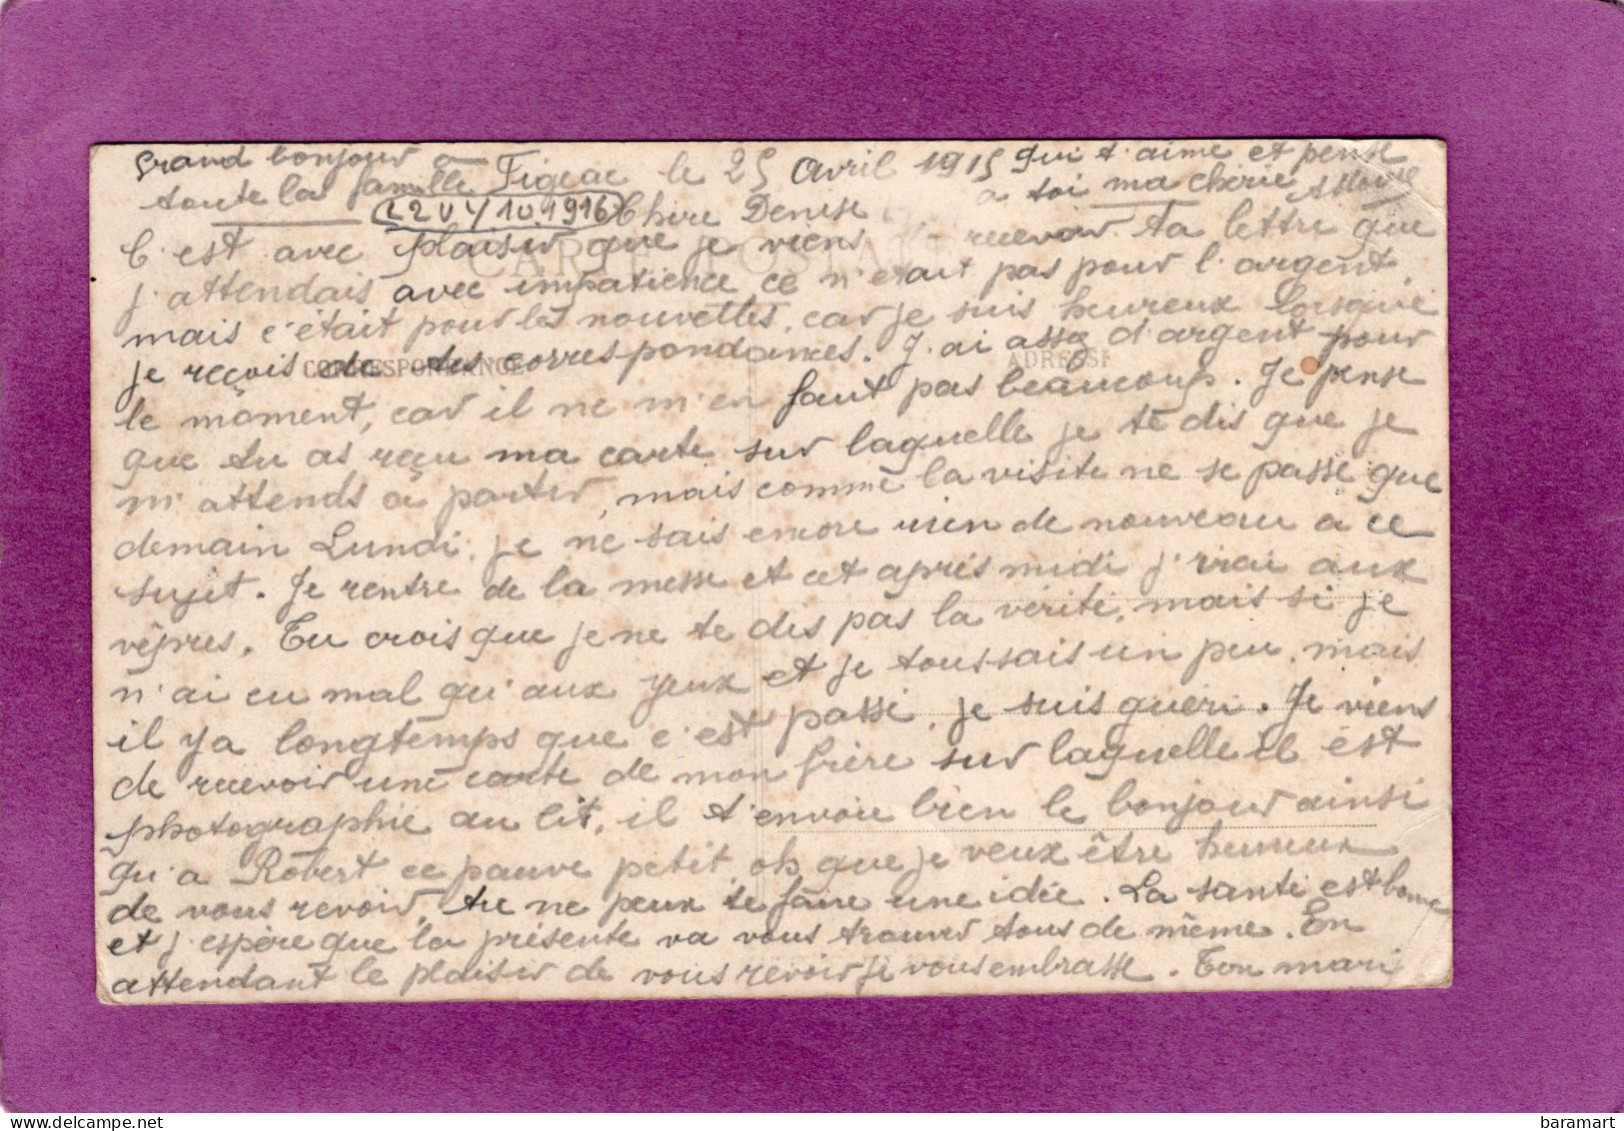 Grand bonjour à
toute la famille
Figeac le 25 Avril 1915
qui t'aime et pense
à toi ma chérie
Chère Denise
CARTE POSTALE
C'est avec plaisir que je viens de recevoir ta lettre que
j'attendais avec impatience ce n'était pas pour l'argent
mais c'était pour les nouvelles, car je suis heureux lorsque
je reçois de des correspondances. J'ai assez d'argent pour
CORRESPONDANCE
ADRESSE
le moment, car il ne m'en faut pas beaucoup. Je pense
que tu as reçu ma carte sur laquelle je te dis que je
m'attends à partir, mais comme la visite ne se passe que
demain Lundi, je ne sais encore rien de nouveau à ce
sujet. Je rentre de la messe et cet après midi j'irai aux
vêpres. Tu crois que je ne te dis pas la vérité, mais si je
n'ai eu mal qu'aux yeux et je toussais un peu, mais
il y a longtemps que c'est passé, je suis guéri. Je viens
de recevoir une carte de mon frère sur laquelle il est
photographié au lit, il t'envoie bien le bonjour ainsi
qu'a Robert ce pauvre petit, oh que je veux être heureux
de vous revoir, tu ne peux te faire une idée. La santé est bonne
et j'espère que la présente va vous trouver tous de même. En
attendant le plaisir de vous revoir je vous embrasse. Ton mari
baramart